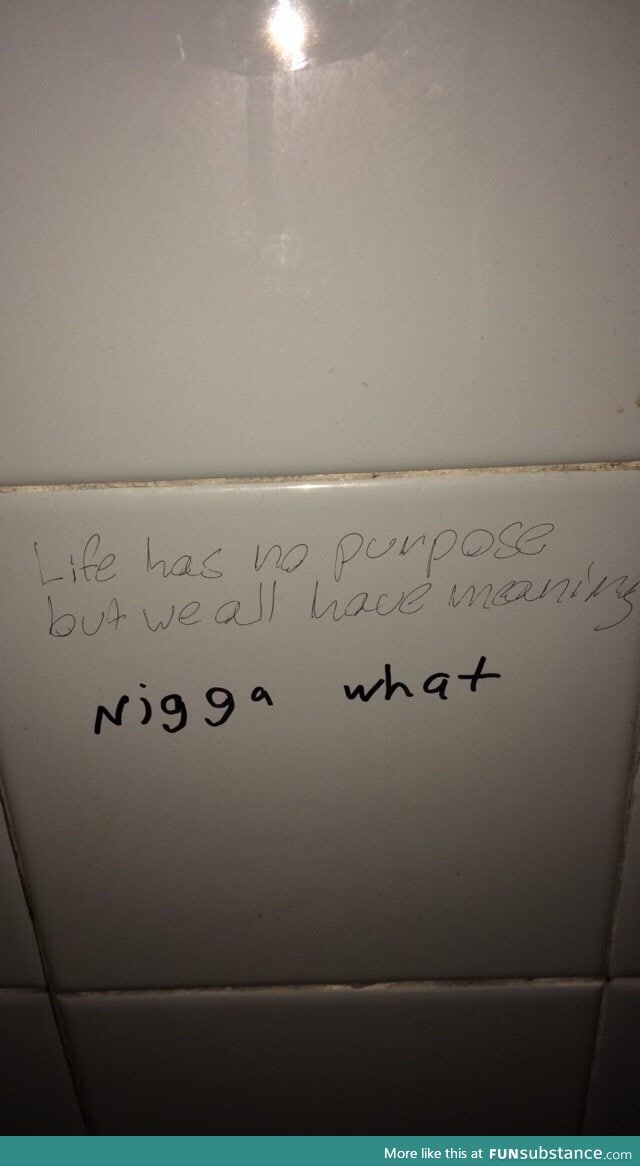 Life has no purpose
but we all have meaning
Nigga what
More like this at FUNsubstance.com